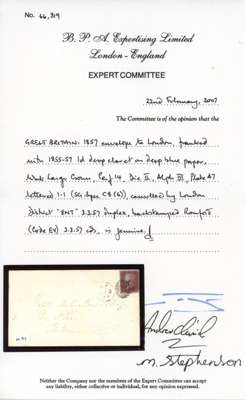 No. 66,819
B. P. A. Expertising Limited
London - England
EXPERT COMMITTEE
22nd February, 2007
The Committee is of the opinion that the
GREAT BRITAIN: 1857 envelope to London, franked
with 1855-57 1d deep claret on deep blue paper,
Wmk Large Crown, Perf 14, Die II, Alph III, Plate 47
lettered (SG Spec C8 (6)), cancelled by London
District 2.2.57 duplex, backstamped Romford
(Code EX) 2.2.57 cds, is genuine.
M. Stephenson
Neither the Company nor the members of the Expert Committee can accept
any liability, either collective or individual, for any opinion expressed.